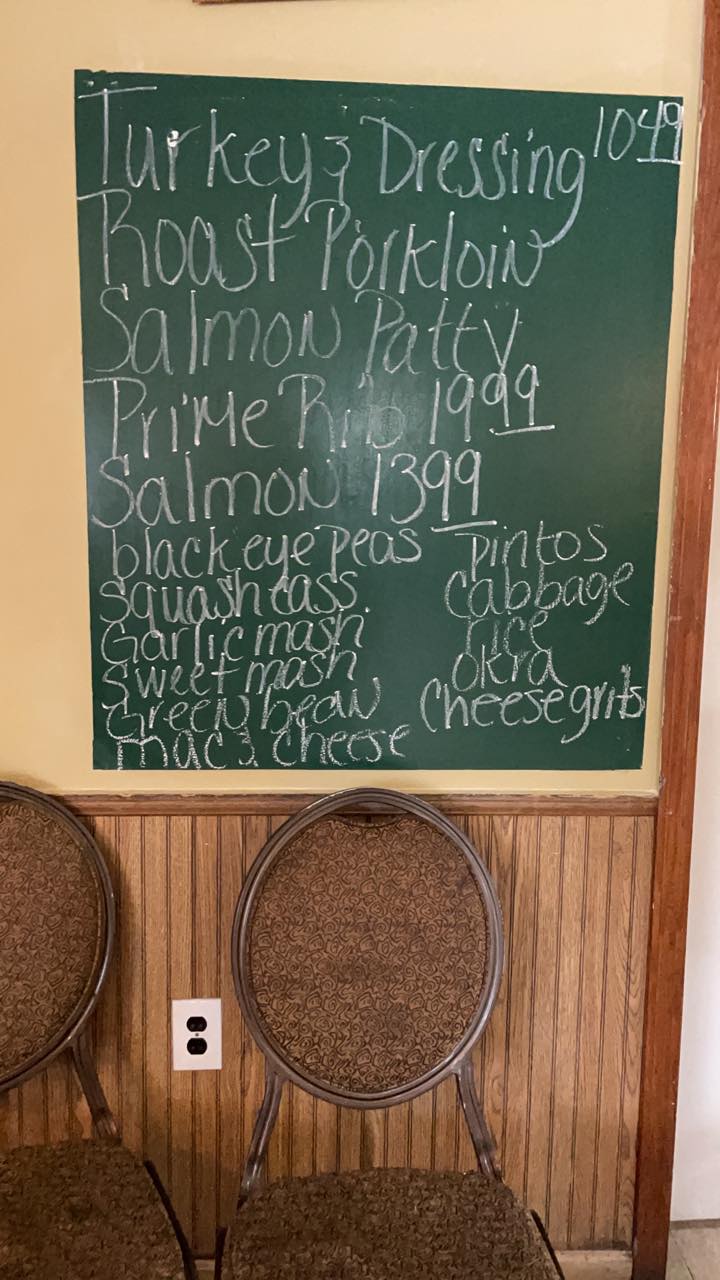 Turkey & Dressing 1049
Roast Porkloin
Salmon Patty
Prime Rib 1999
Salmon 1399
blackeye peas
squash cass
Garlic mash
Sweet mash
Green bean
mac & cheese
pintos
Cabbage
rice
okra
Cheese grits